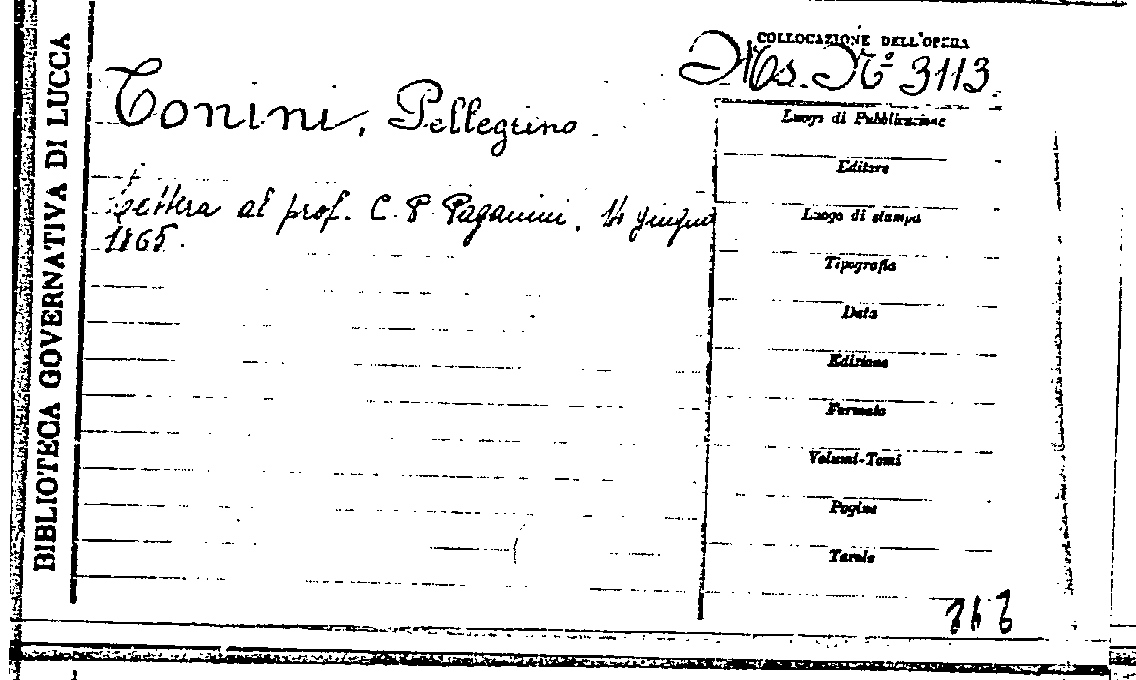 BIBLIOTECA GOVERNATIVA DI LUCCA
COLLOCAZIONE DELL'OPERA
Ms. N.º 3113.
Tonini, Pellegrino.
Lettera al prof. C. P. Paganini, 14 giugno
1865.
Luogo di Pubblicazione
Editore
Luogo di stampa
Tipografia
Data
Edizione
Formato
Volumi-Tomi
Pagine
Tavole